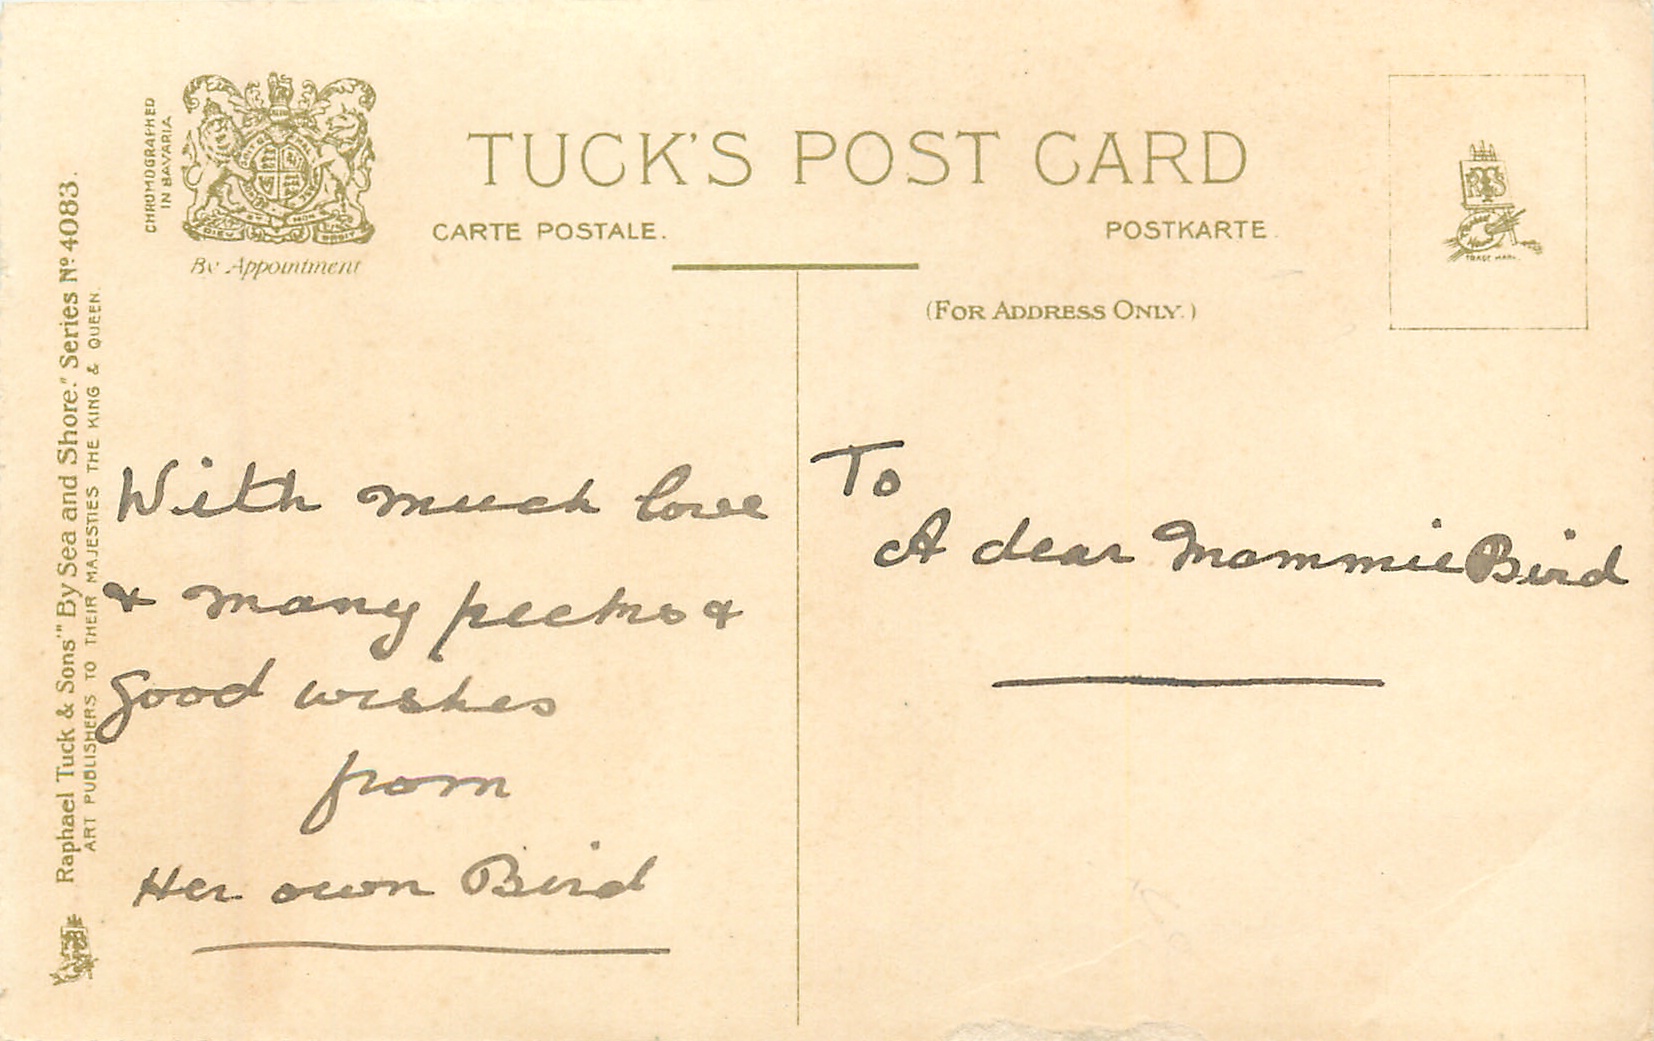 TUCK'S POST CARD
CARTE POSTALE.
POSTKARTE
(FOR ADDRESS ONLY.)
CHROMOGRAPHED
IN BAVARIA
By Appointment
Raphael Tuck & Sons' "By Sea and Shore." Series No. 4083.
ART PUBLISHERS TO THEIR MAJESTIES THE KING & QUEEN.
TRADE MARK.
With much love
& many pecks &
good wishes
from
Her own Bird
To
A dear Mammie Bird